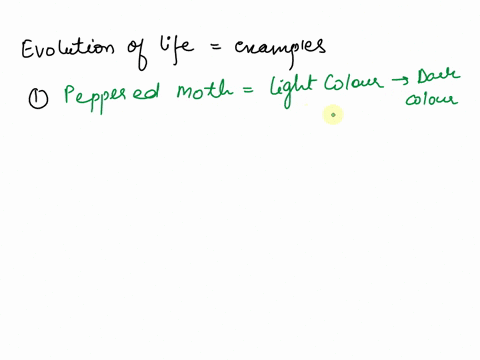 Evolution of life = examples
① Peppered moth = Light Colour → Dark
colour